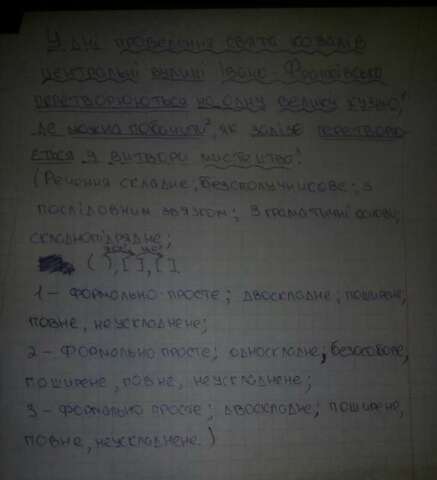 У дні проведення свята ковалів
центральні вулиці Івано-Франківська
перетворюються на одну велику кузню,¹
де можна побачити², як залізо перетворю-
ється у витвори мистецтва³.
(Речення складне; безсполучникове; з
послідовним звязком; 3 граматичні основи;
складнопідрядне;
( ), [ ], [ ].
1 – формально просте; двоскладне; поширене,
повне, неускладнене;
2 – формально просте; односкладне, безособове,
поширене, повне, неускладнене;
3 – формально просте; двоскладне; поширене,
повне, неускладнене.)